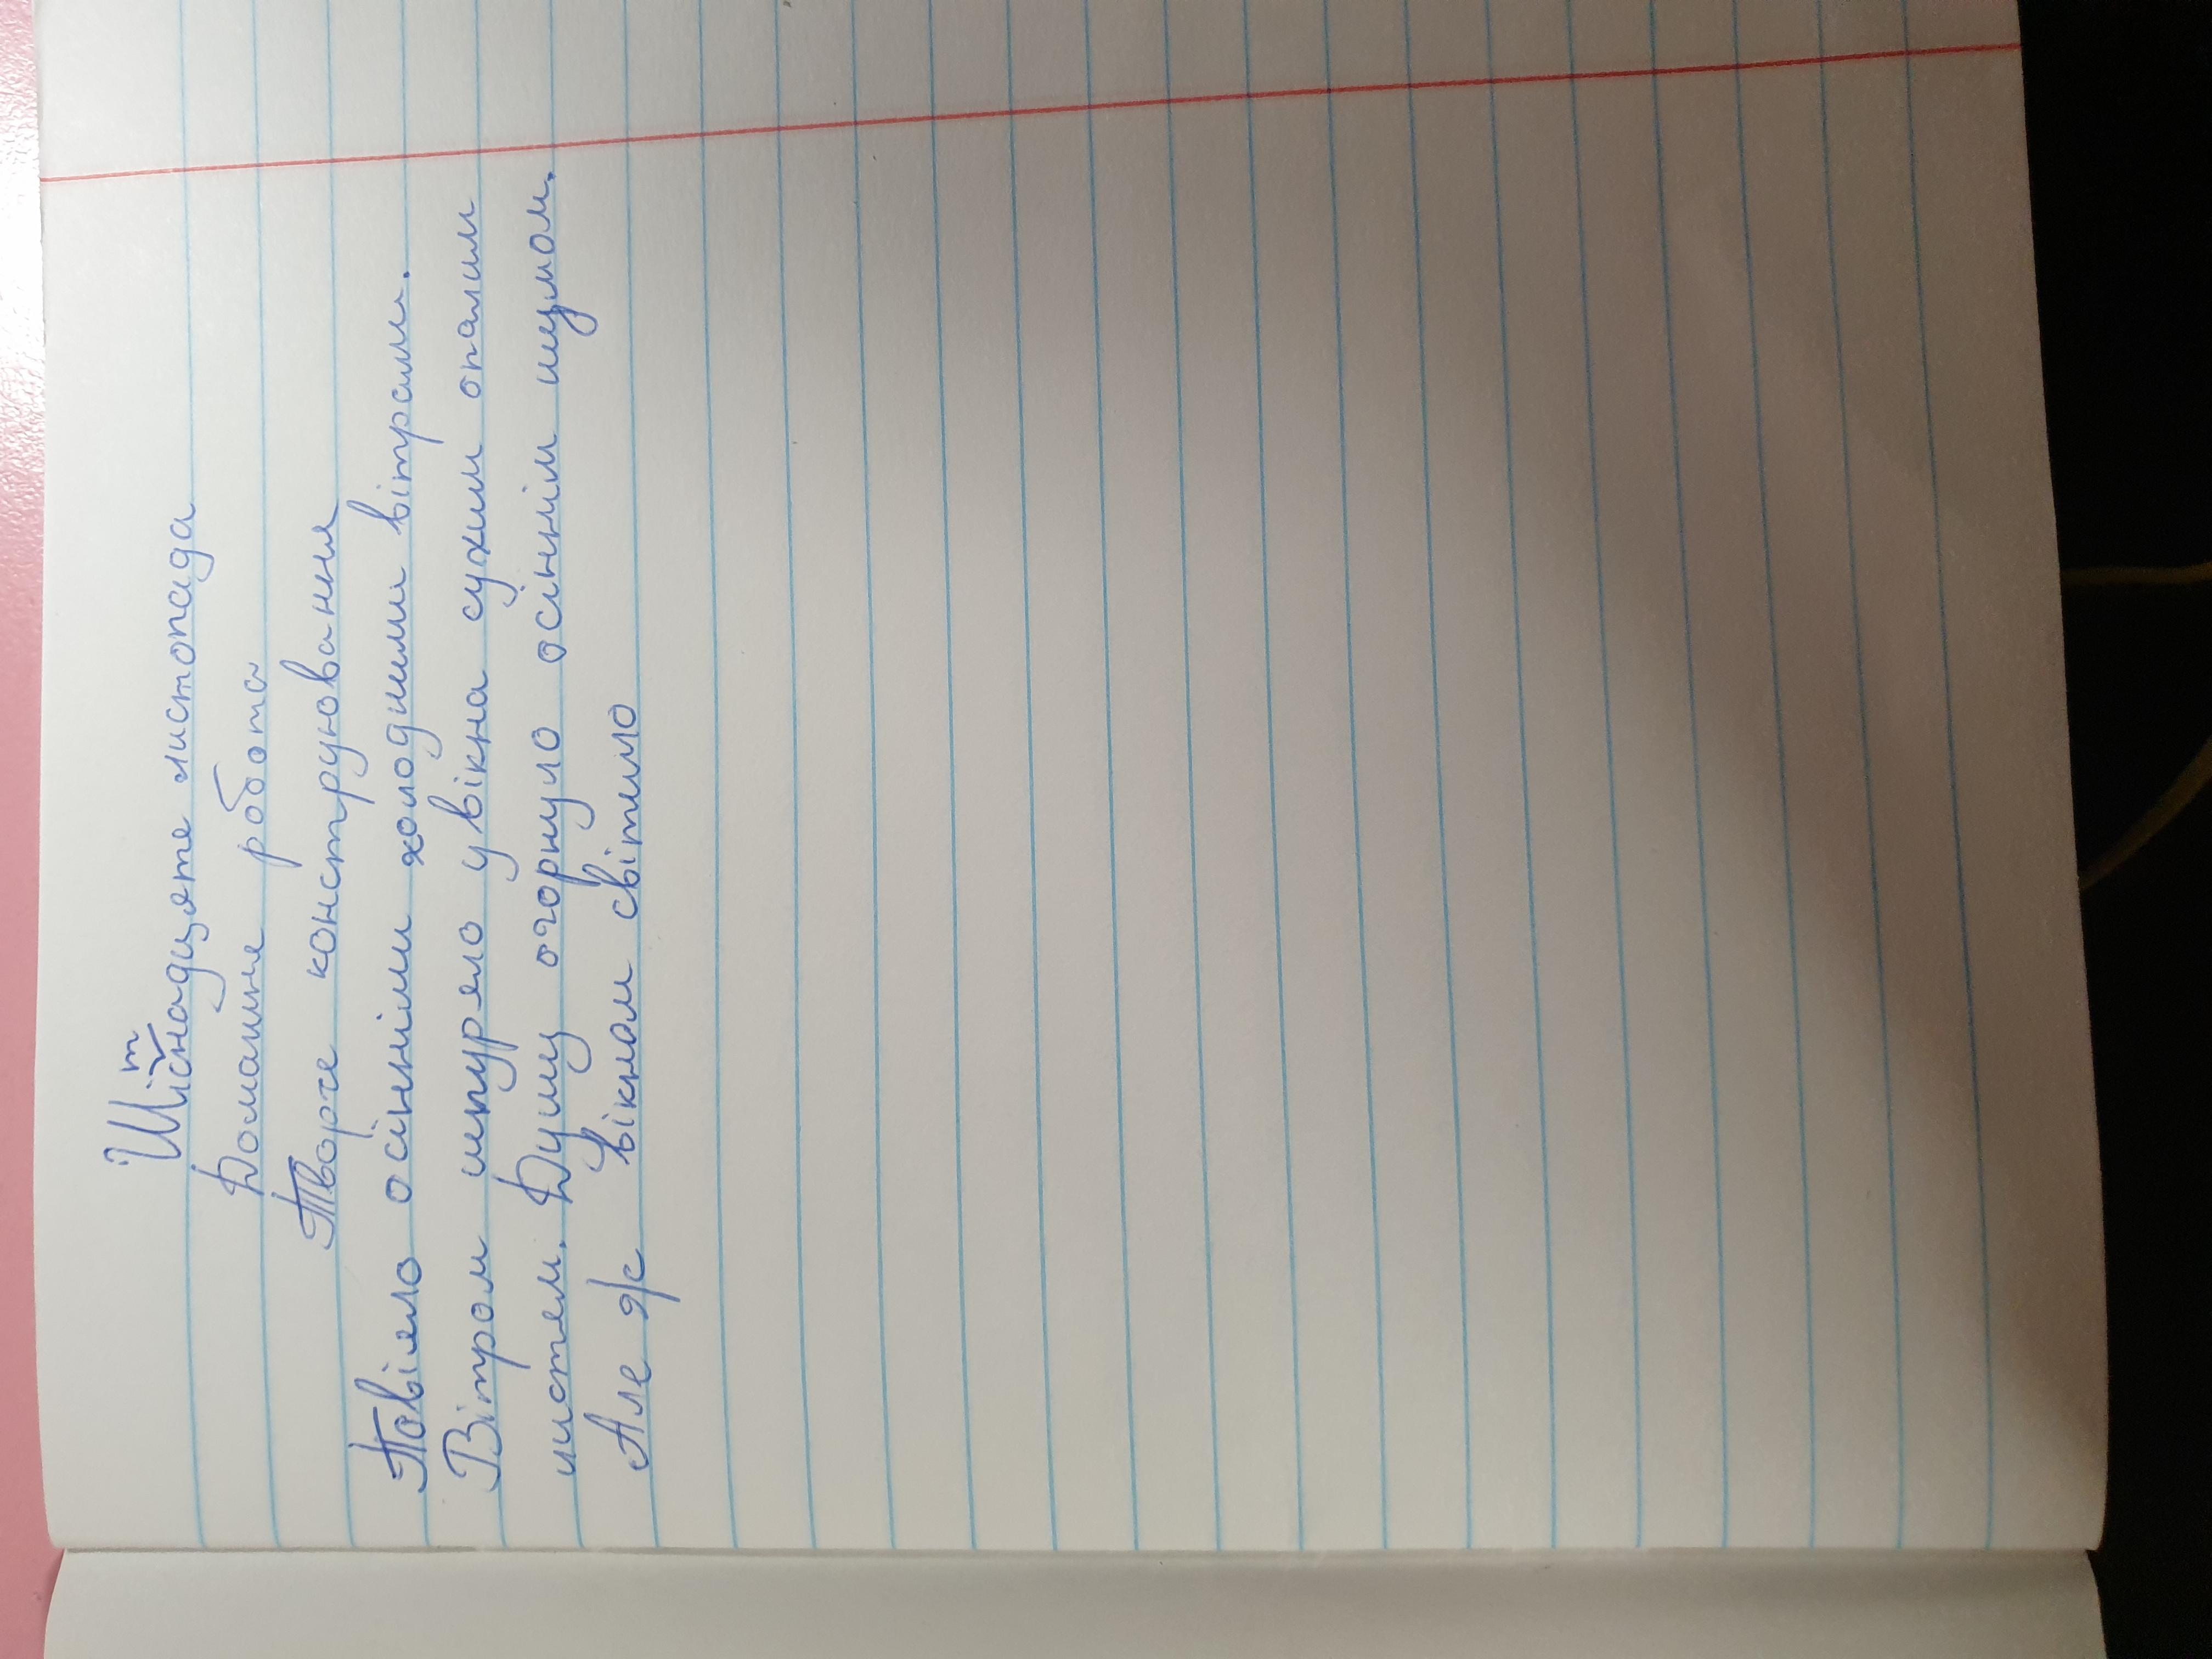 Шістнадцяте листопада
Домашнє робота
Творче конструювання
Повіяло осінніми холодними вітрами.
Вітром шпуряло у вікна сухим опалим
листям. Душу огорнуло осіннім шумом.
Але я/с вікном світило